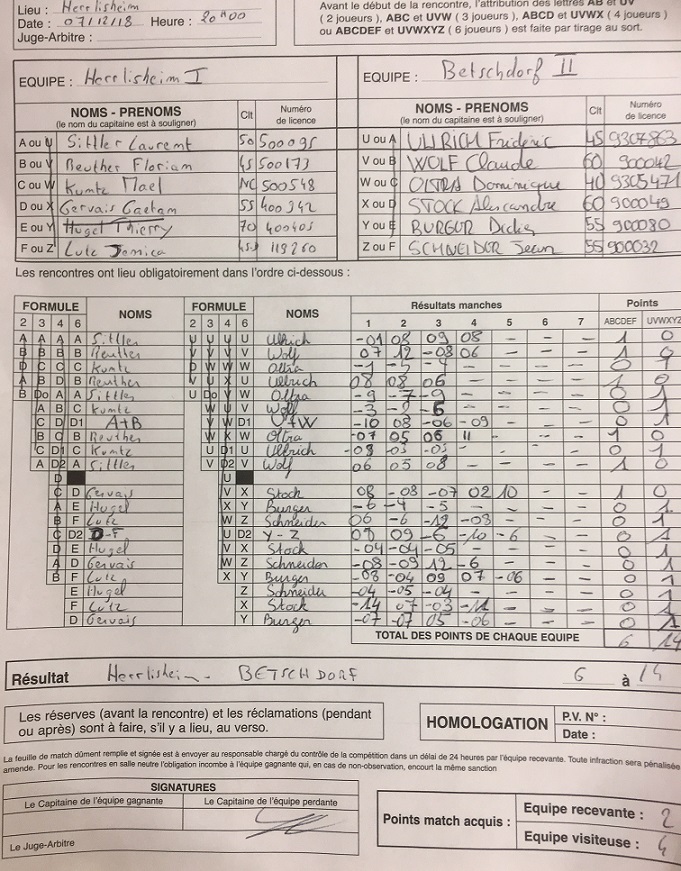 Lieu : Herrlisheim
Date : 07/12/18 Heure : 20H00
Juge-Arbitre :
Avant le début de la rencontre, l'attribution des lettres AB et UV
( 2 joueurs ), ABC et UVW ( 3 joueurs ), ABCD et UVWX ( 4 joueurs )
ou ABCDEF et UVWXYZ ( 6 joueurs ) est faite par tirage au sort.
EQUIPE : Herrlisheim I
EQUIPE : Betschdorf II
NOMS - PRENOMS (le nom du capitaine est à souligner) Clt Numéro de licence
A ou U Sittler Laurent 50 500095
B ou V Beuther Florian 45 500173
C ou W Kuntz Mael NC 500548
D ou X Gervais Gaetan 55 400342
E ou Y Hugel Thierry 70 400405
F ou Z Lutz 119260
NOMS - PRENOMS (le nom du capitaine est à souligner) Clt Numéro de licence
U ou A ULLRICH Frédéric 45 9307863
V ou B WOLF Claude 60 900042
W ou C OLTRA Dominique 40 9305471
X ou D STOCK Alexandre 60 900049
Y ou E BURGER Didier 55 900080
Z ou F SCHNEIDER Jean 55 900032
Les rencontres ont lieu obligatoirement dans l'ordre ci-dessous :
FORMULE NOMS FORMULE NOMS Résultats manches Points
2 3 4 6 2 3 4 6 1 2 3 4 5 6 7 ABCDEF UVWXYZ
A A A A Sittler U U U U Ullrich -01 08 09 08 - - - 1 0
B B B B Beuther V V V V Wolf 07 12 -08 06 - - - 1 0
C C C Kuntz W W W Oltra - - - - 0 1
A B D B Beuther V U X U Ullrich 08 08 06 - - - - 1 0
B Do A A Sittler U Do V W Oltra -9 -7 -9 - - - - 0 1
A B C Kuntz W U V Wolf -3 - - - - - 0 1
C D D1 A+B V W D1 U+W -10 08 -06 -09 - - - 0 1
B C B Beuther W X W Oltra -07 05 06 11 - - - 1 0
C D1 C Kuntz U D1 U Ullrich - - - - 0 1
A D2 A Sittler V D2 V Wolf 06 05 08 - - - - 1 0
D U
C D Gervais V X Stock 08 -08 -07 02 10 - - 1 0
A E Hugel X Y Burger -6 -4 -5 - - - - 0 1
B F Lutz W Z Schneider 06 -6 -12 -03 - - - 0 1
C D2 D-F U D2 Y-Z 09 -6 -10 -6 - - 0 1
D E Hugel V X Stock -04 -04 -05 - - - - 0 1
A D Gervais W Z Schneider -08 -09 12 -6 - - - 0 1
B F Lutz X Y Burger -08 -04 09 07 -06 - - 0 1
E Hugel Z Schneider -04 -05 -04 - - - - 0 1
F Lutz X Stock -14 07 -03 -11 - - - 0 1
D Gervais Y Burger -07 -07 05 -06 - - - 0 1
TOTAL DES POINTS DE CHAQUE EQUIPE 6 14
Résultat Herrlisheim - BETSCHDORF 6 à 14
Les réserves (avant la rencontre) et les réclamations (pendant
ou après) sont à faire, s'il y a lieu, au verso.
HOMOLOGATION P.V. N° :
Date :
La feuille de match dûment remplie et signée est à envoyer au responsable chargé du contrôle de la compétition dans un délai de 24 heures par l'équipe recevante. Toute infraction sera pénalisée
amende. Pour les rencontres en salle neutre l'obligation incombe à l'équipe gagnante qui, en cas de non-observation, encourt la même sanction
SIGNATURES
Le Capitaine de l'équipe gagnante Le Capitaine de l'équipe perdante
Le Juge-Arbitre
Points match acquis : Equipe recevante : 2
Equipe visiteuse : 4